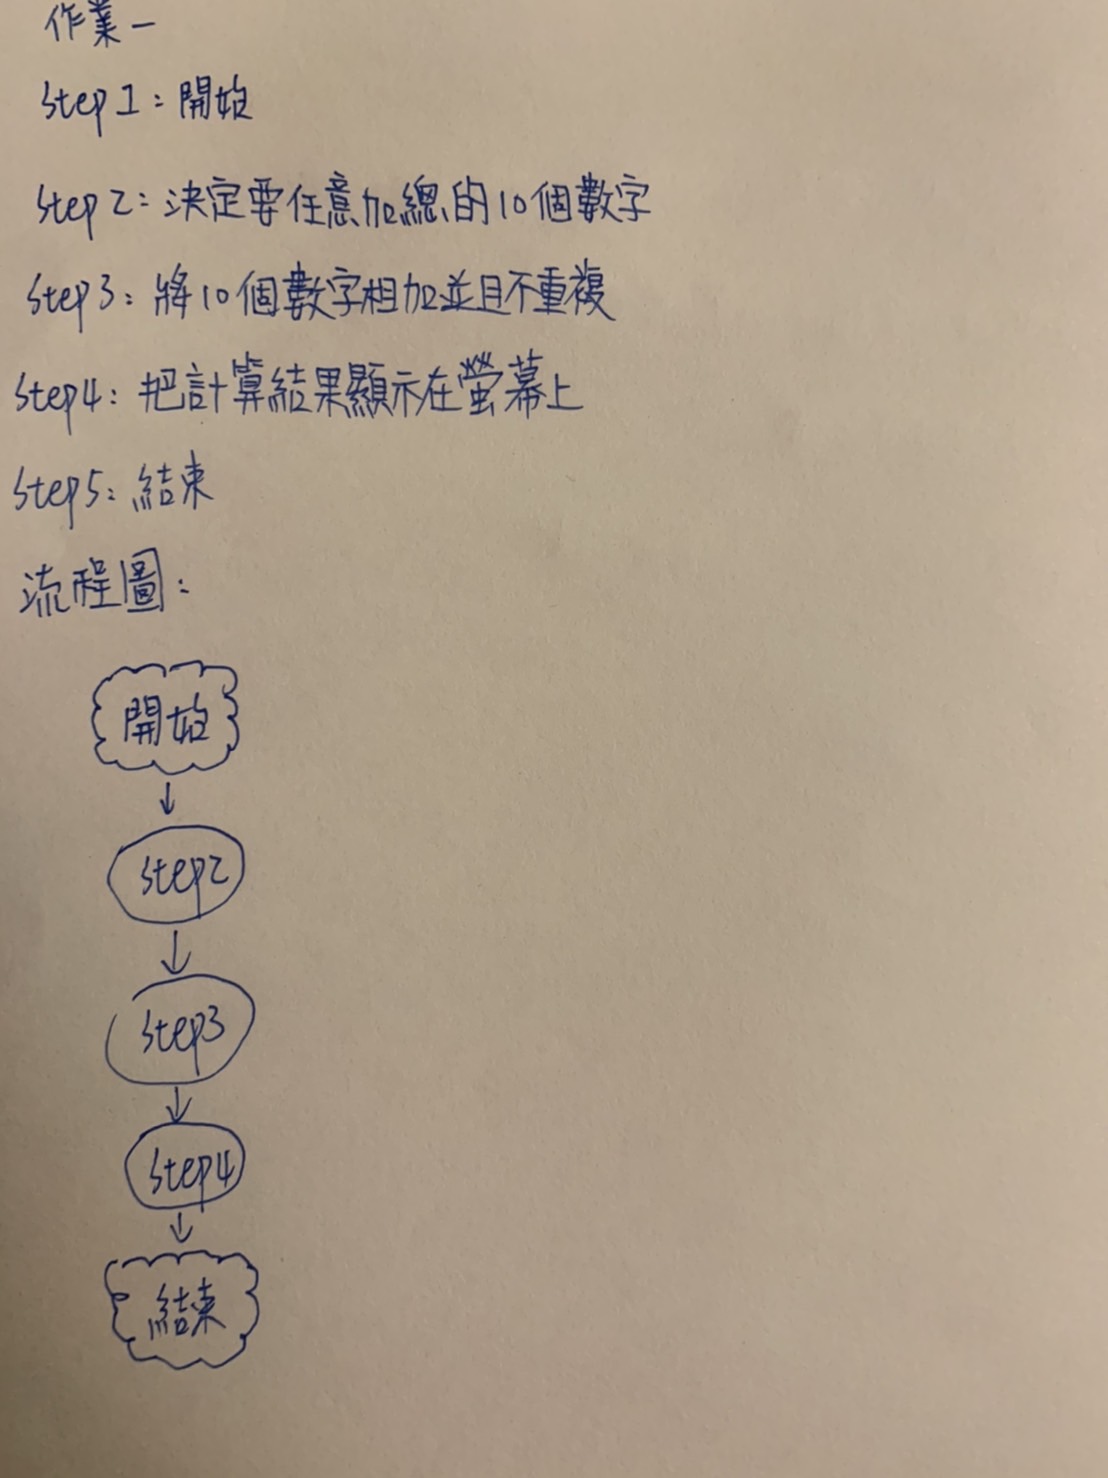 作業一
Step1:開始
Step2:決定要任意加總的10個數字
Step3:將10個數字相加並且不重複
Step4:把計算結果顯示在螢幕上
Step5:結束
流程圖:
開始
Step2
Step3
Step4
結束